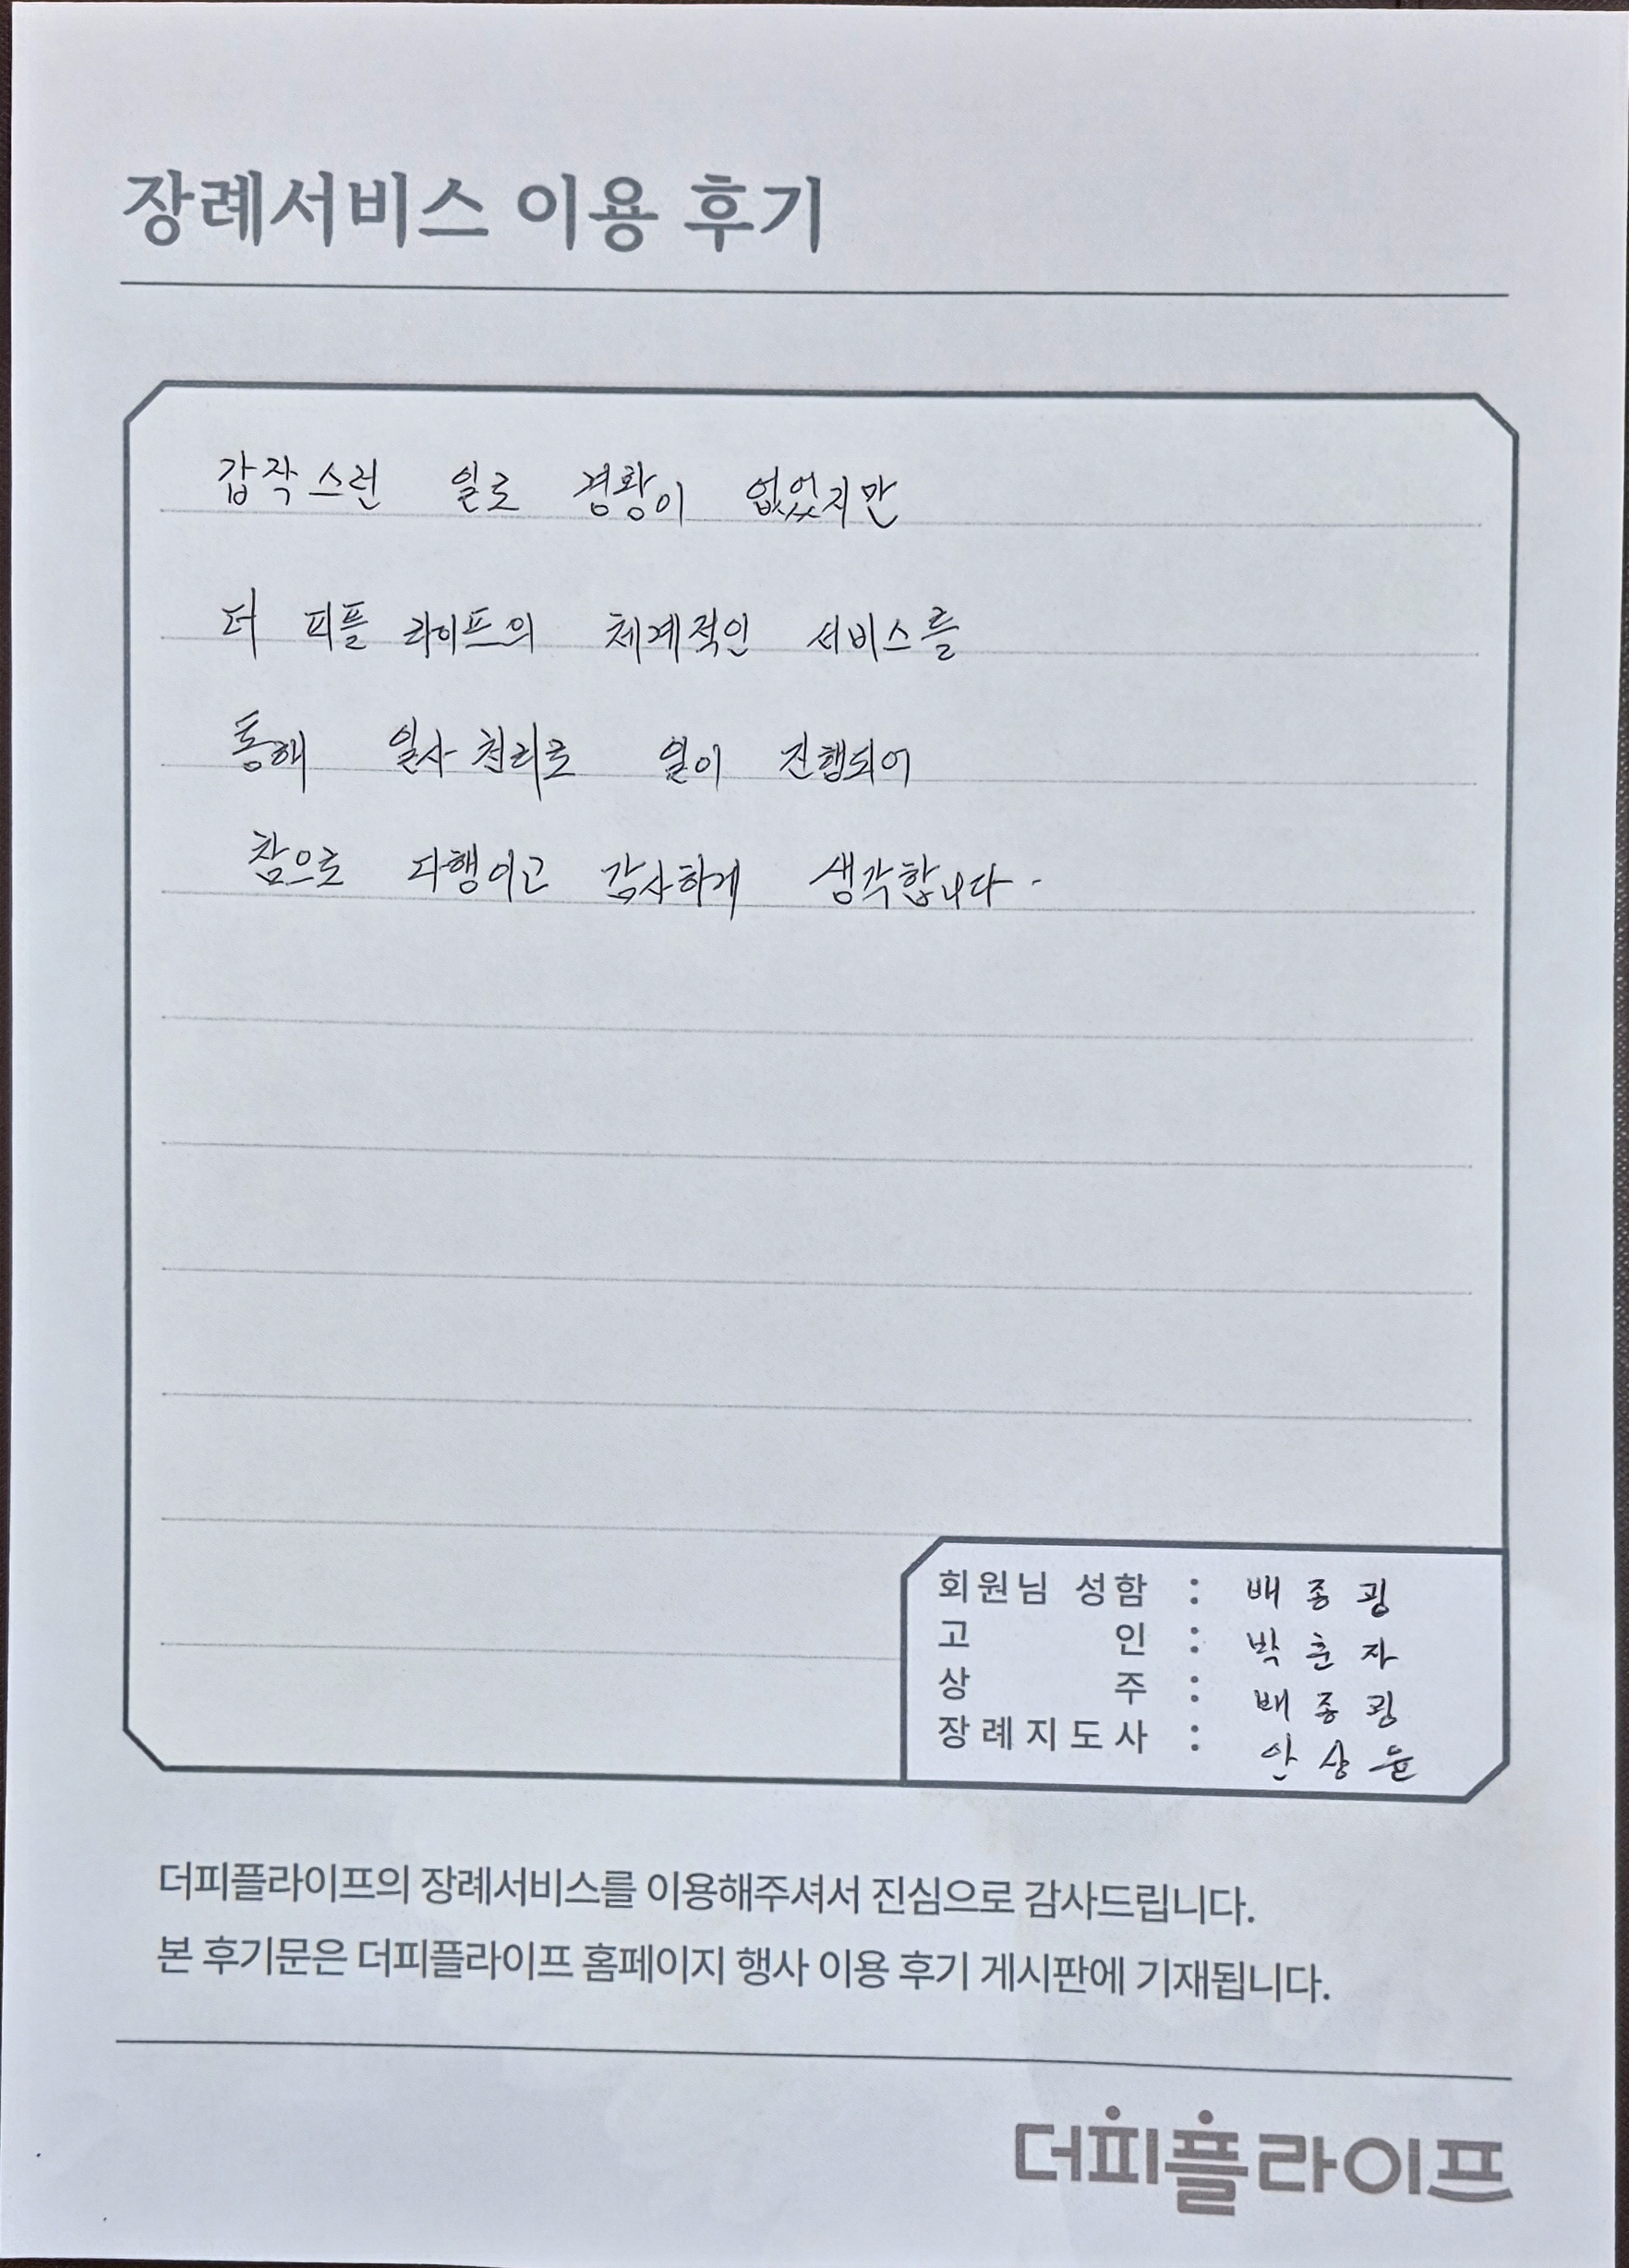 장례서비스 이용 후기
갑작스런 일로 경황이 없었지만
더 피플 라이프의 체계적인 서비스를
통해 일사천리로 일이 진행되어
참으로 다행이고 감사하게 생각합니다.
회원님 성함 : 배종광
고 인 : 박춘자
상 주 : 배종광
장례지도사 : 안상윤
더피플라이프의 장례서비스를 이용해주셔서 진심으로 감사드립니다.
본 후기문은 더피플라이프 홈페이지 행사 이용 후기 게시판에 기재됩니다.
더피플라이프